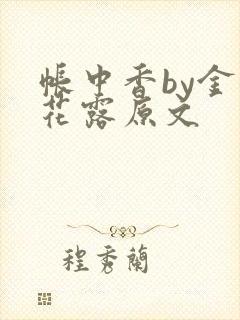 帳中香by金
花露原文
程秀蘭